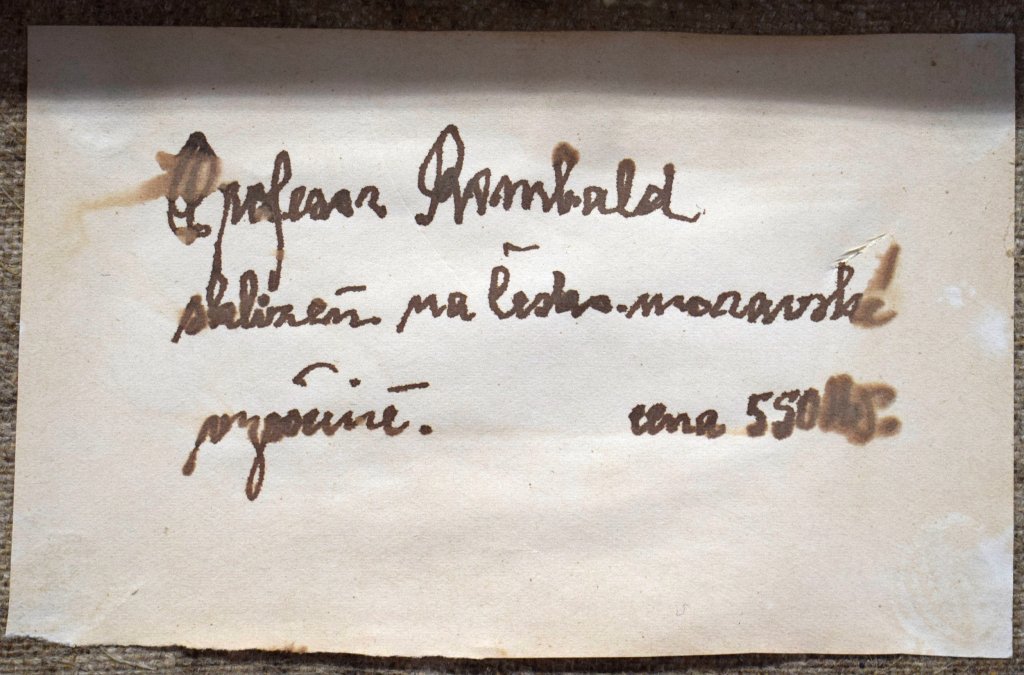 profesor Rombald
sklizeň na česko-moravské
vysočině. cena 550 Kčs.